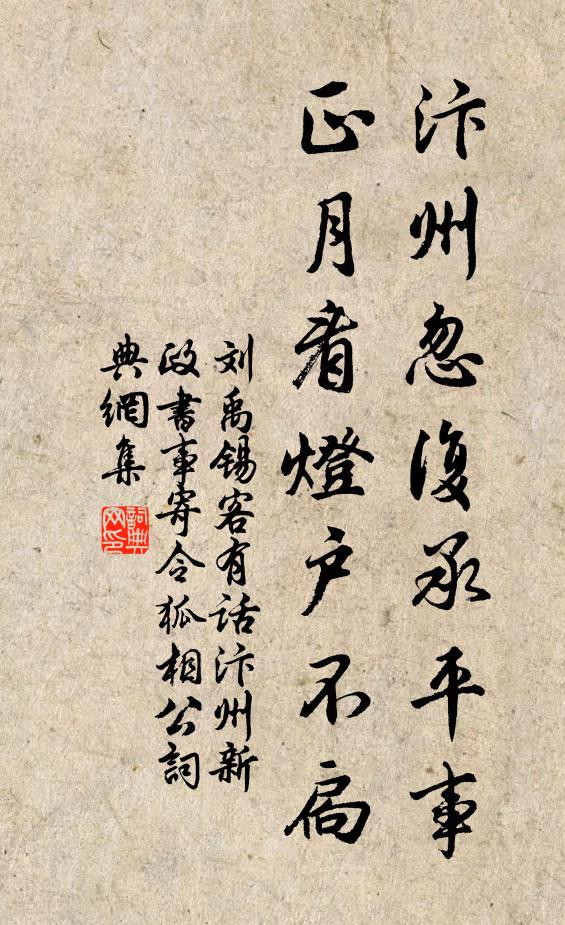 汴州忽復承平事
正月看燈户不扃
刘禹锡客有话汴州新
政書事寄令狐相公詞
典網集
詞典网印